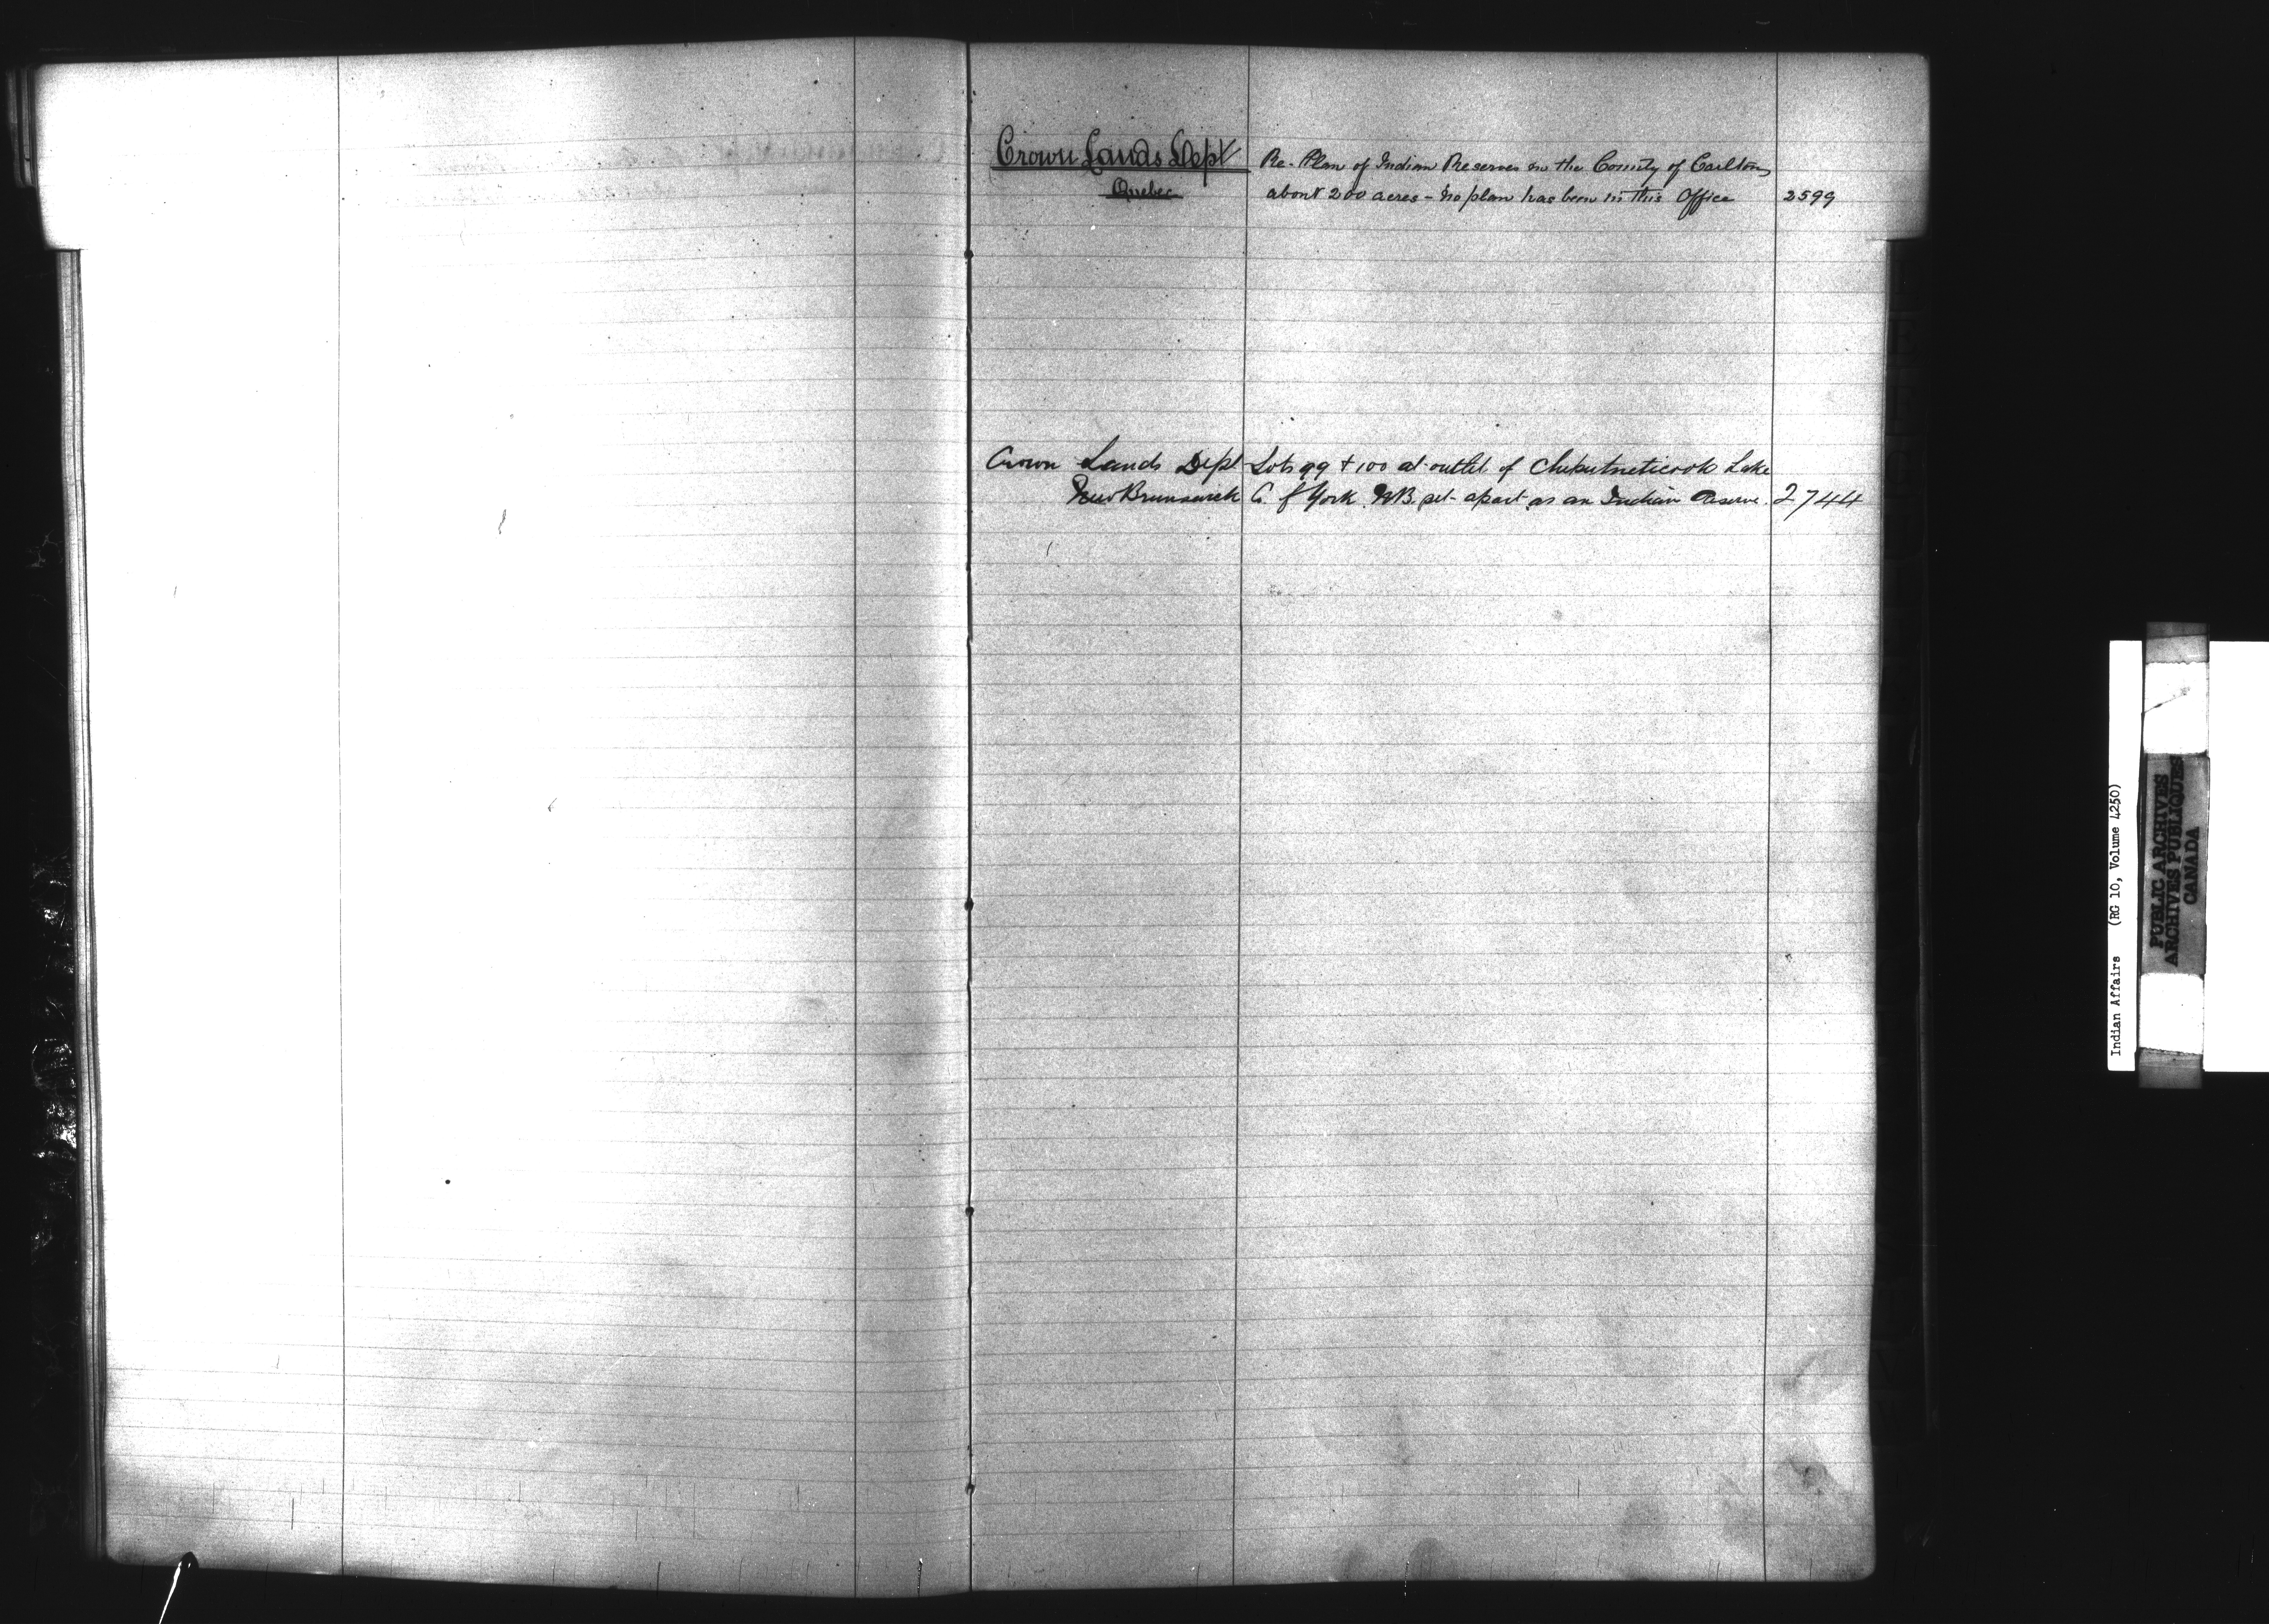 Crown Lands Dept
Quebec
Re- Plan of Indian Reserves in the County of Carlton
about 200 acres - No plan has been in this Office 2599
Crown Lands Dept Lots 99 + 100 at outlet of Cheputneticook Lake
New Brunswick Co. of York. N.B. set apart as an Indian Reserve. 2744
Indian Affairs (RG 10, Volume 4250)
PUBLIC ARCHIVES
ARCHIVES PUBLIQUES
CANADA